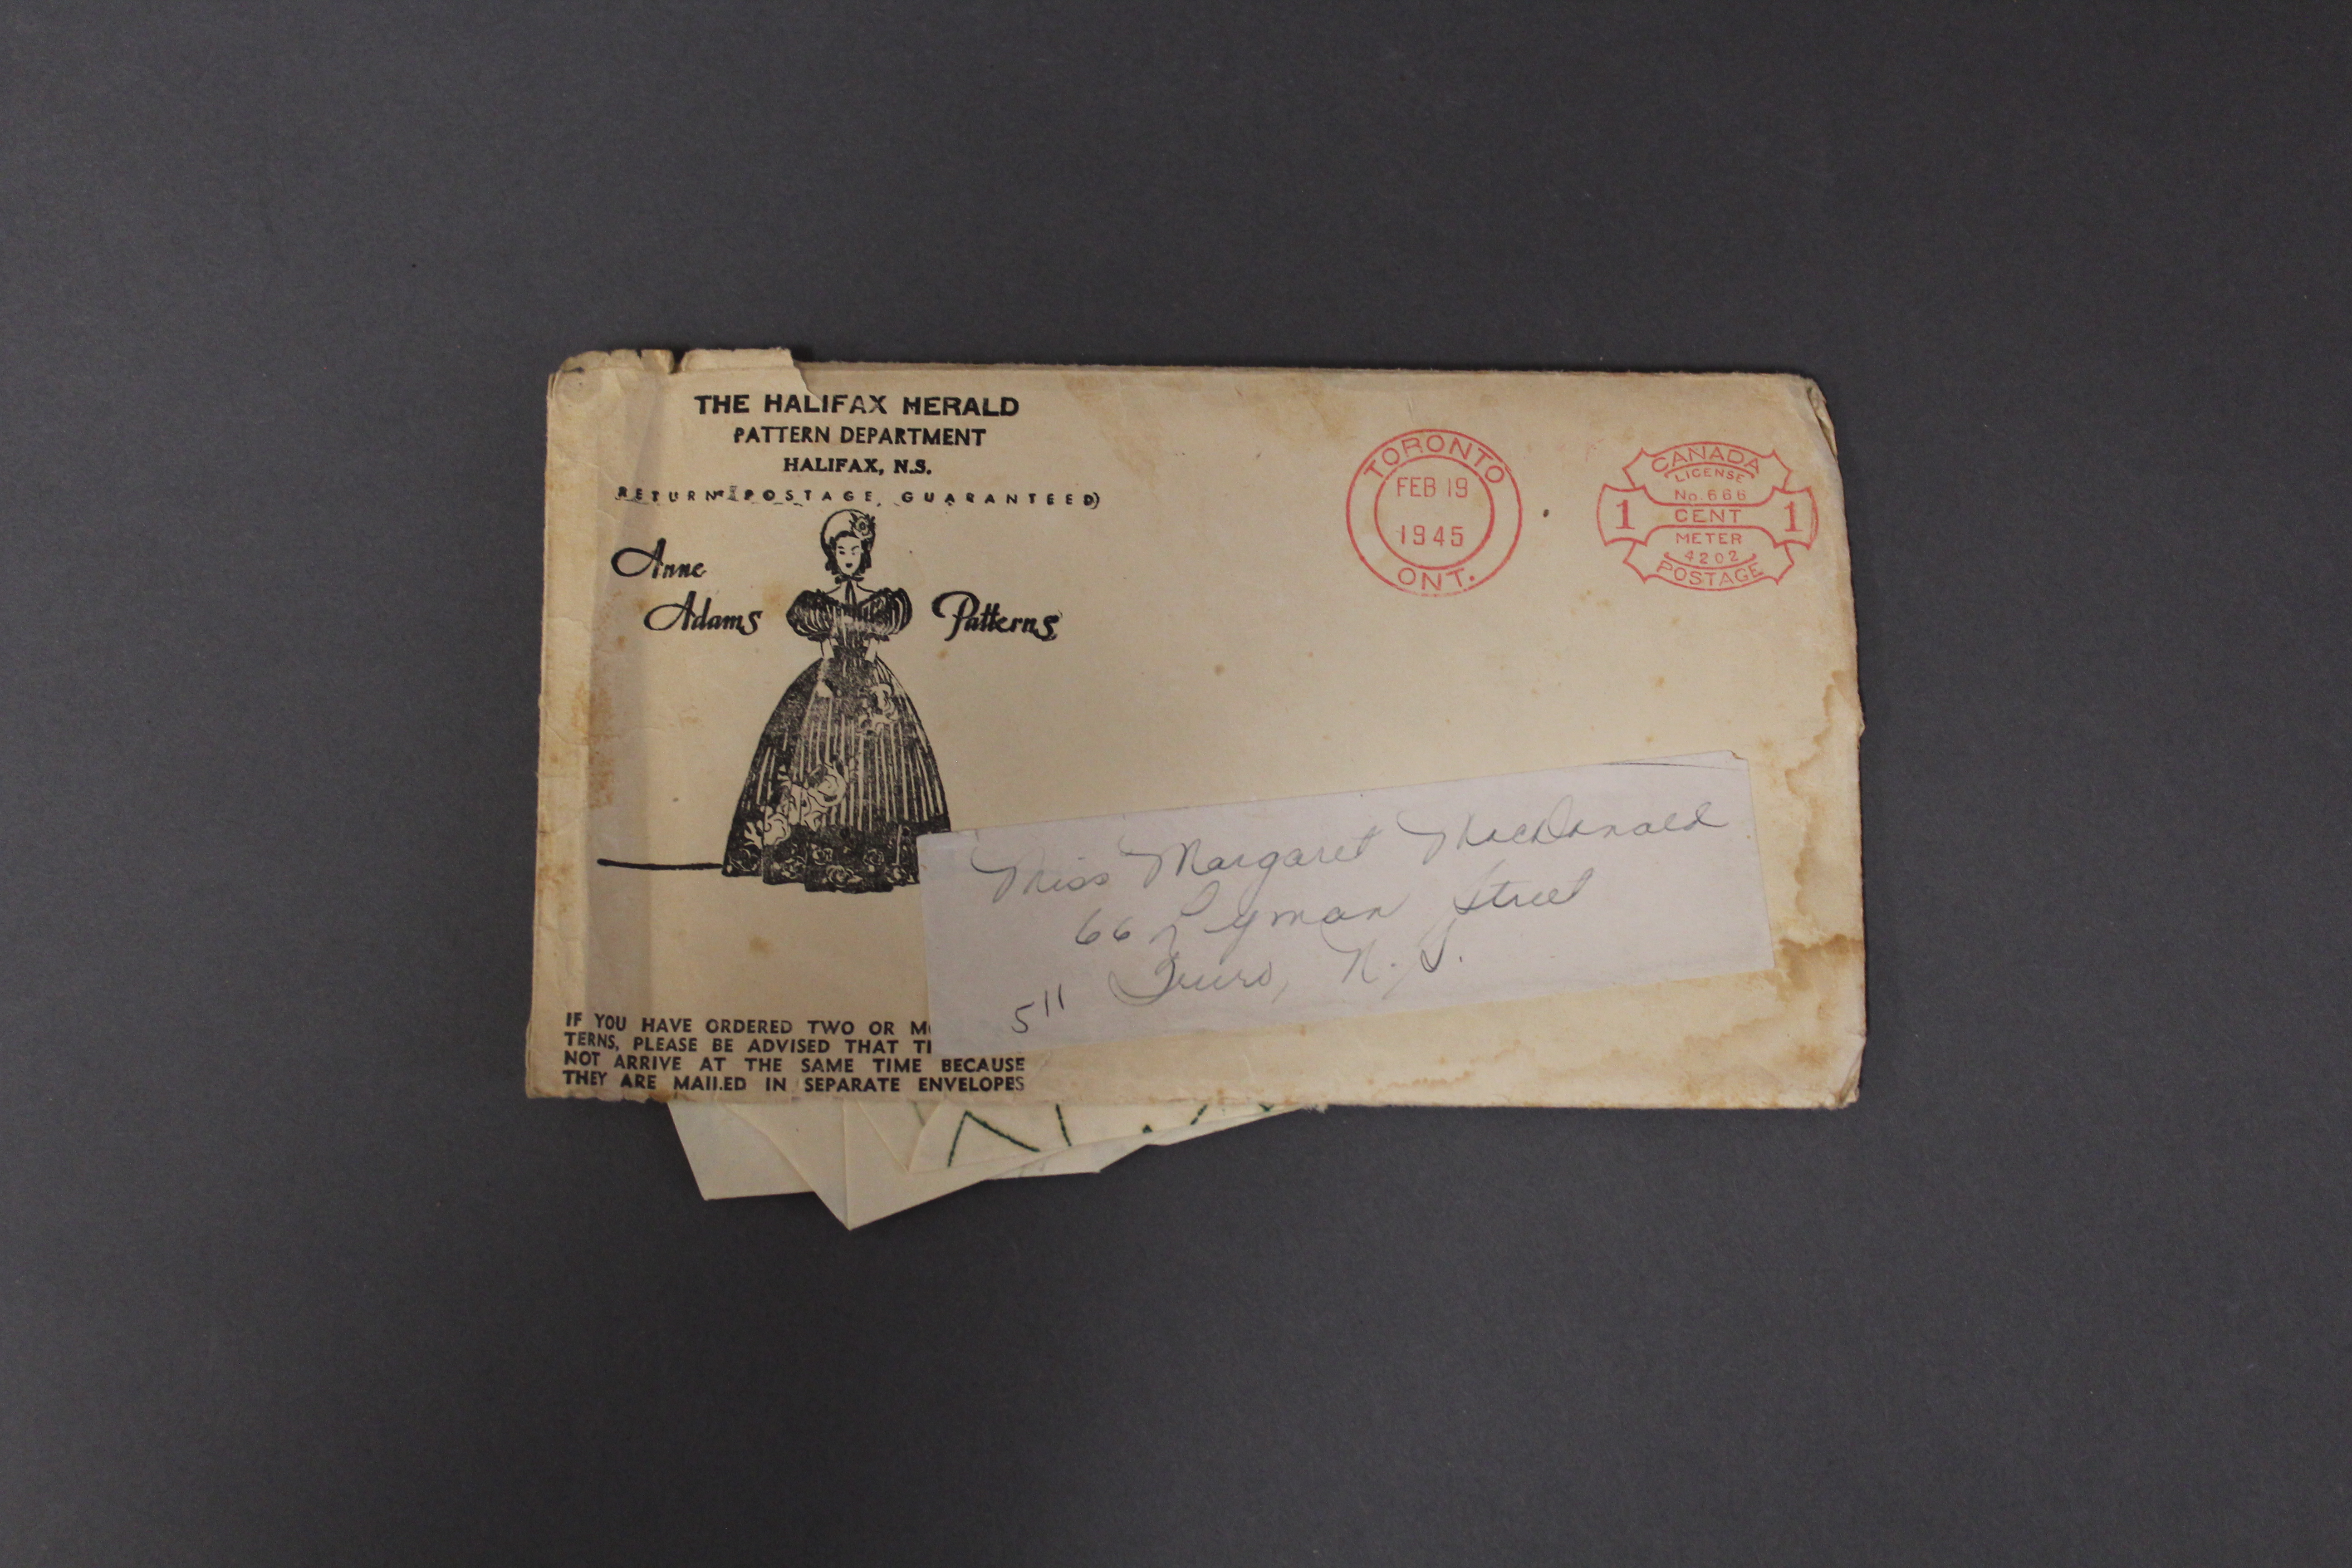 THE HALIFAX HERALD
PATTERN DEPARTMENT
HALIFAX, N.S.
RETURN POSTAGE GUARANTEED)
Anne
Adams Patterns
TORONTO
FEB 19
1945
ONT.
CANADA
LICENSE
No. 666
1 CENT 1
METER
4202
POSTAGE
Miss Margaret MacDonald
66 Lyman Street
Truro, N.S.
511
IF YOU HAVE ORDERED TWO OR
TERNS, PLEASE BE ADVISED THAT
NOT ARRIVE AT THE SAME TIME BECAUSE
THEY ARE MAILED IN SEPARATE ENVELOPES